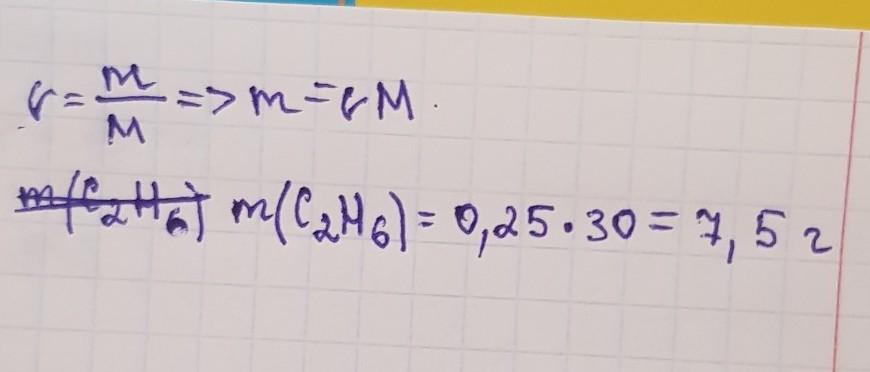 ν = m/M => m = νM.
m(C₂H₆) m(C₂H₆) = 0,25 · 30 = 7,5 г